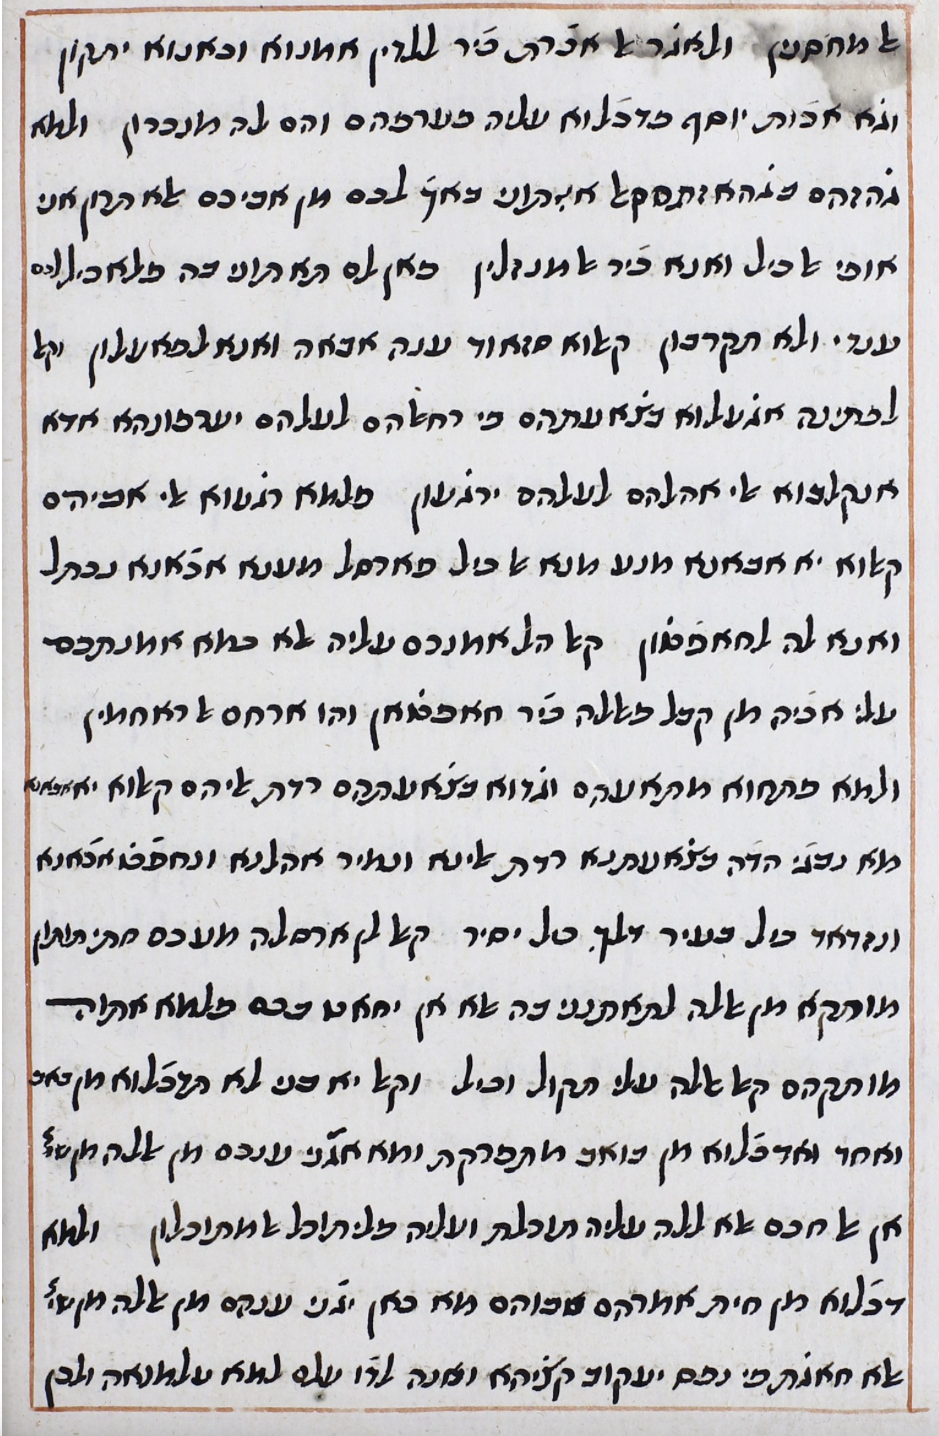 אל מחסנין ולאג̇ר אל אכ̇רת כ̇יר ללדין אמנוא וכאנוא יתקון
וג̇א אכ̇ות יוסף פדכ̇לוא עליה פערפהם והם לה מנכרון ולמא
ג̇הזהם בג̇האזהם קאל איתוני באך̇ לכם מן אביכם אלא תרון אני
אופי אל כיל ואנא כ̇יר אל מנזלין פאן לם תאתוני בה פלא כיל לכם
ענדי ולא תקרבון קאלוא סנאוד ענה אבאה ואנא לפאעלון וקאל
לפתינה אג̇עלוא בצ̇אעתהם פי רחאלהם לעלהם יערפונהא אדא
אנקלבוא אלי אהלהם לעלהם ירג̇עון פלמא רג̇עוא אלי אביהם
קאלוא יא אבאנא מנע מנא אל כיל פארסל מענא אכ̇אנא נכתל
ואנא לה לחאפט̇ון קאל הל אמנכם עליה אלא כמא אמנתכם
עלי אכ̇יה מן קבל פאללה כ̇יר חאפט̇אן והו ארחם אל ראחמין
ולמא פתחוא מתאעהם וג̇דוא בצ̇אעתהם רדת אליהם קאלוא יא אבאנא
מא נבג̇י הד̇ה בצ̇אעתנא רדת אלינא ונמיר אהלנא ונחפט̇ אכ̇אנא
ונזדאד כיל בעיר דלך כיל יסיר קאל לן ארסלה מעכם חתי תותון
מותקא מן אללה לתאתנני בה אלא אן יחאט בכם פלמא אתוה
מותקהם קאל אללה עלי תקול וכיל וקאל יא בני לא תדכ̇לוא מן באב
ואחד ואדכ̇לוא מן בואב מתפרקת ומא אג̇ני ענכם מן אללה מן שי
אן אל חכם אלא ללה עליה תוכלת ועליה פליתוכל אל מתוכלון ולמא
דכ̇לוא מן חית אמרהם אבוהם מא כאן יג̇ני ענהם מן אללה מן שי
אלא חאג̇ת פי נפס יעקוב קצ̇יהא ואנה לד̇ו עלם למא עלמנאה ולכן